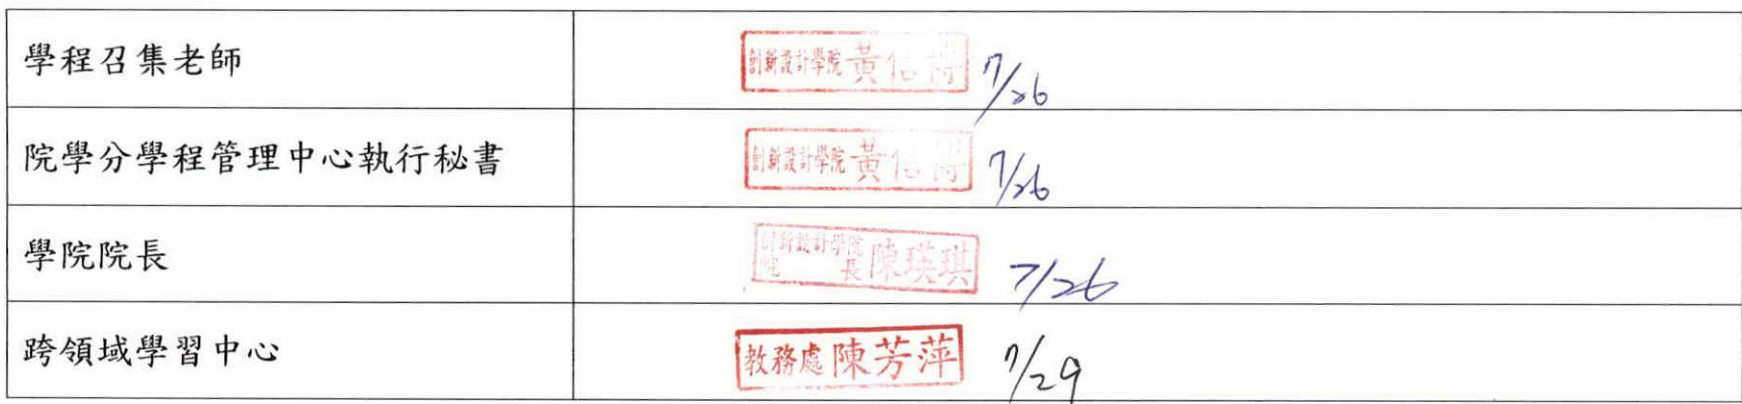 學程召集老師
創新設計學院 黃信博 7/26
院學分學程管理中心執行秘書
創新設計學院 黃信博 7/26
學院院長
創新設計學院
院長 陳瑛琪 7/26
跨領域學習中心
教務處 陳芳萍 7/29